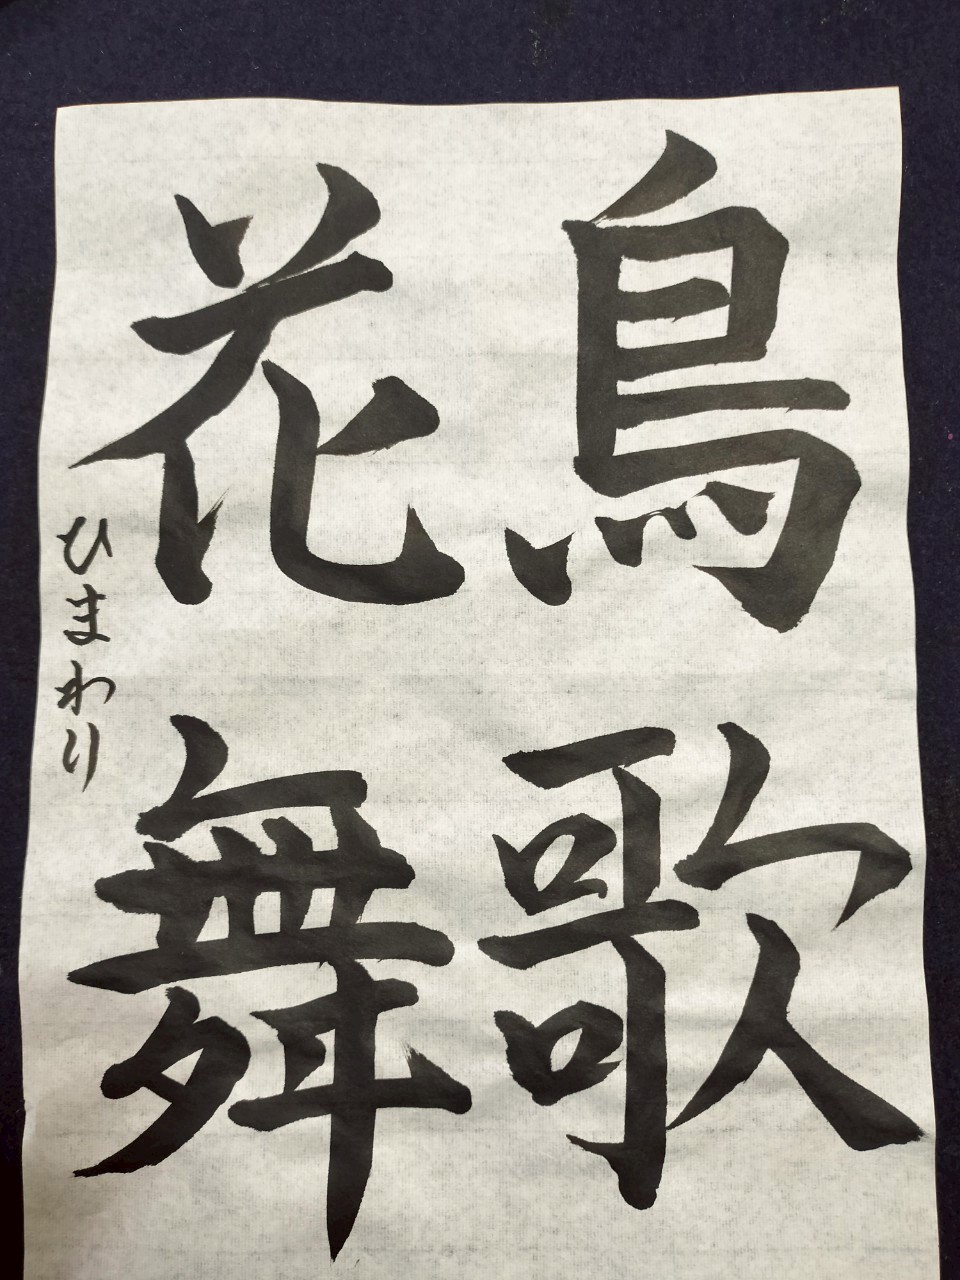 鳥歌
花舞
ひまわり